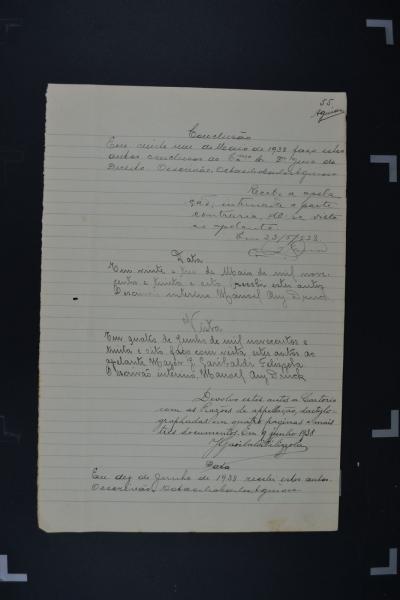 55
Aguiar
Conclusão
Em vinte um de Maio de 1938 faço estes
autos conclusos ao Exmo Sr. Dr. Juiz de
Direito. O escrivão,
Recebo a apela
ção, intimada a parte
contraria, dê-se vista
ao apelante.
Em 23/5/938
Data
Em vinte e tres de Maio de mil nove
centos e trinta e oito, recebi estes autos
O escrivão interino, Manoel
Vista
Em quatro de Junho de mil novecentos e
trinta e oito, faço com vista estes autos ao
apelante Major J. Garibaldi Filizzola
O escrivão interino, Manoel
Devolvo estes autos a Cartorio
com as razões de appellação, dactylo-
graphadas em quatro paginas e mais
tres documentos. Em 9 junho 1938
JGaribaldi Filizzola
Data
Em dez de Junho de 1938 recebi estes autos.
O escrivão,